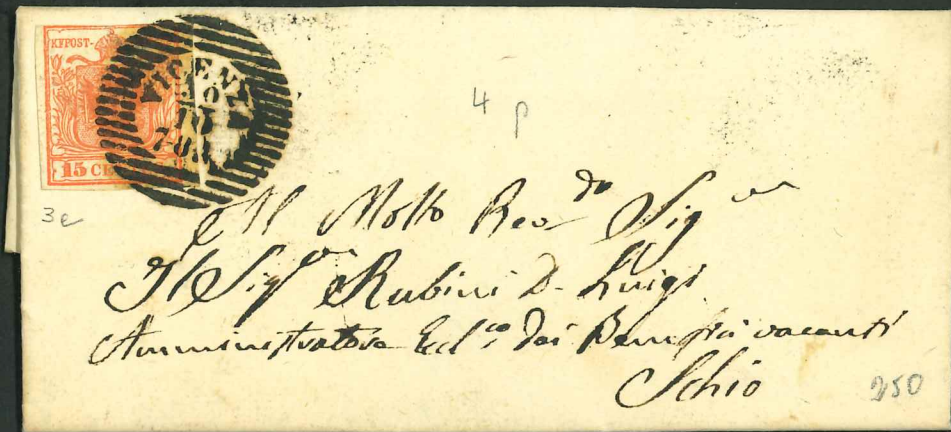 KFPOST-
15 CE
VICENZA
10
3e
4 p
Al Molto Rev.do Sig.re
Il Sig.re Rubini D. Luigi
Amministratore Eccl.co dei Beneficii vacanti
Schio
250